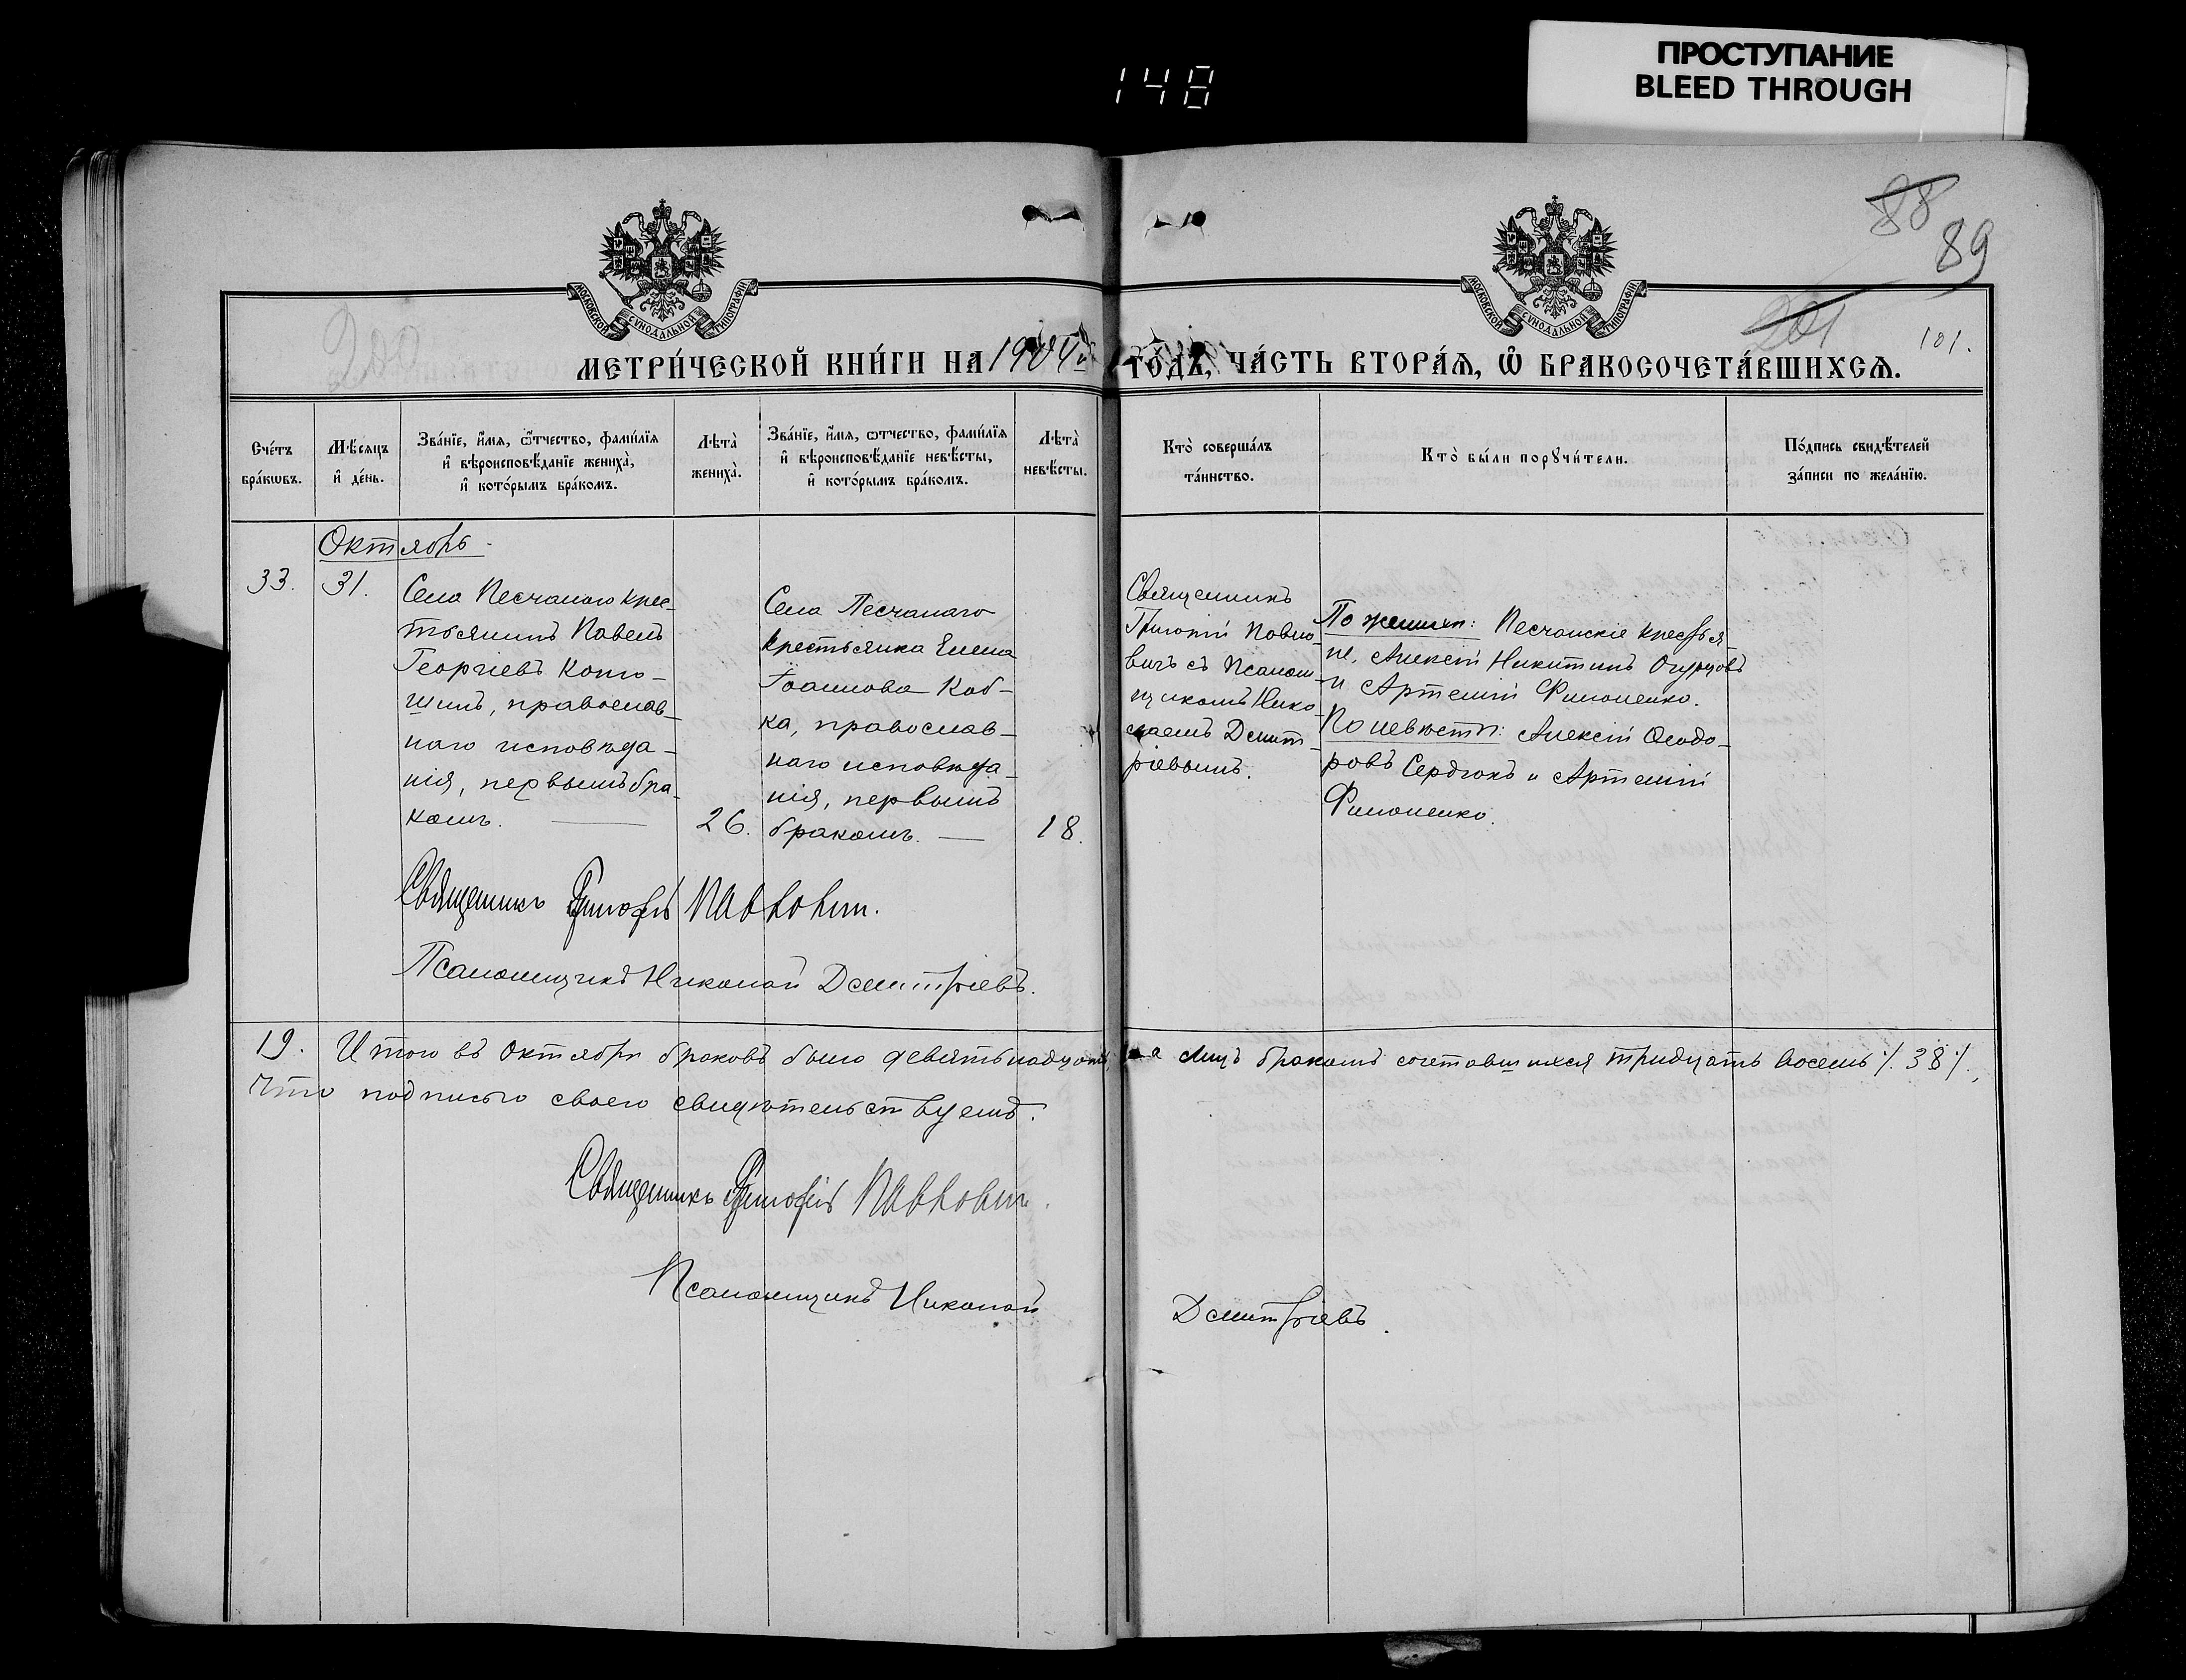 ПРОСТУПАНИЕ
BLEED THROUGH
148
88
89
200
201
101.
МОСКОВСКОЙ СѴНОДАЛЬНОЙ ТИПОГРАФІИ
МОСКОВСКОЙ СѴНОДАЛЬНОЙ ТИПОГРАФІИ
МЕТРИ́ЧЕСКОЙ КНИ́ГИ НА 1904й ГО́ДЪ, ЧА́СТЬ ВТОРА́Я, Ѡ҆ БРАКОСОЧЕТА́ВШИХСЯ.
Сче́тъ
бра́кѡвъ.
Мѣ́сяцъ
и҆ де́нь.
Зва́нїе, и҆́мя, ѻ҆́тчество, фами́лїя
и҆ вѣроисповѣ́данїе жениха̀,
и҆ кото́рымъ бра́комъ.
Лѣта̀
жениха̀.
Зва́нїе, и҆́мя, ѻтчество, фами́лїя
и҆ вѣроисповѣ́данїе невѣ́сты,
и҆ кото́рымъ бра́комъ.
Лѣта̀
невѣ́сты.
Кто̀ соверша́лъ
та́инство.
Кто̀ бы́ли порꙋчи́тели.
По́дпись свидѣ́телей
за́писи по жела́нїю.
Октябрь.
33.
31.
Села Песчанаго крес-
тьянинъ Павелъ
Георгіевъ Коню-
шинъ, православ-
наго исповѣда-
нія, первымъ бра-
комъ.
26.
Села Песчанаго
крестьянка Елена
Іоаннова Коб-
ка, православ-
наго исповѣда-
нія, первымъ
бракомъ.
18.
Священникъ
Григорій Павло-
вичъ съ Псалом-
щикомъ Нико-
лаемъ Димит-
ріевымъ.
По женихѣ: Песчанскіе крестья-
не, Алексій Никитинъ Огурцовъ
и Артемій Филоненко.
По невѣстѣ: Алексій Ѳеодо-
ровъ Сердюкъ и Артемій
Филоненко.
Священникъ Григорій Павловичъ.
Псаломщикъ Николай Димитріевъ.
19. Итого въ Октябрѣ браковъ было девятнадцать, а лицъ бракомъ сочетавшихся тридцать восемь ./. 38 ./.,
что подписью своею свидѣтельствуемъ.
Священникъ Григорій Павловичъ.
Псаломщикъ Николай Димитріевъ.